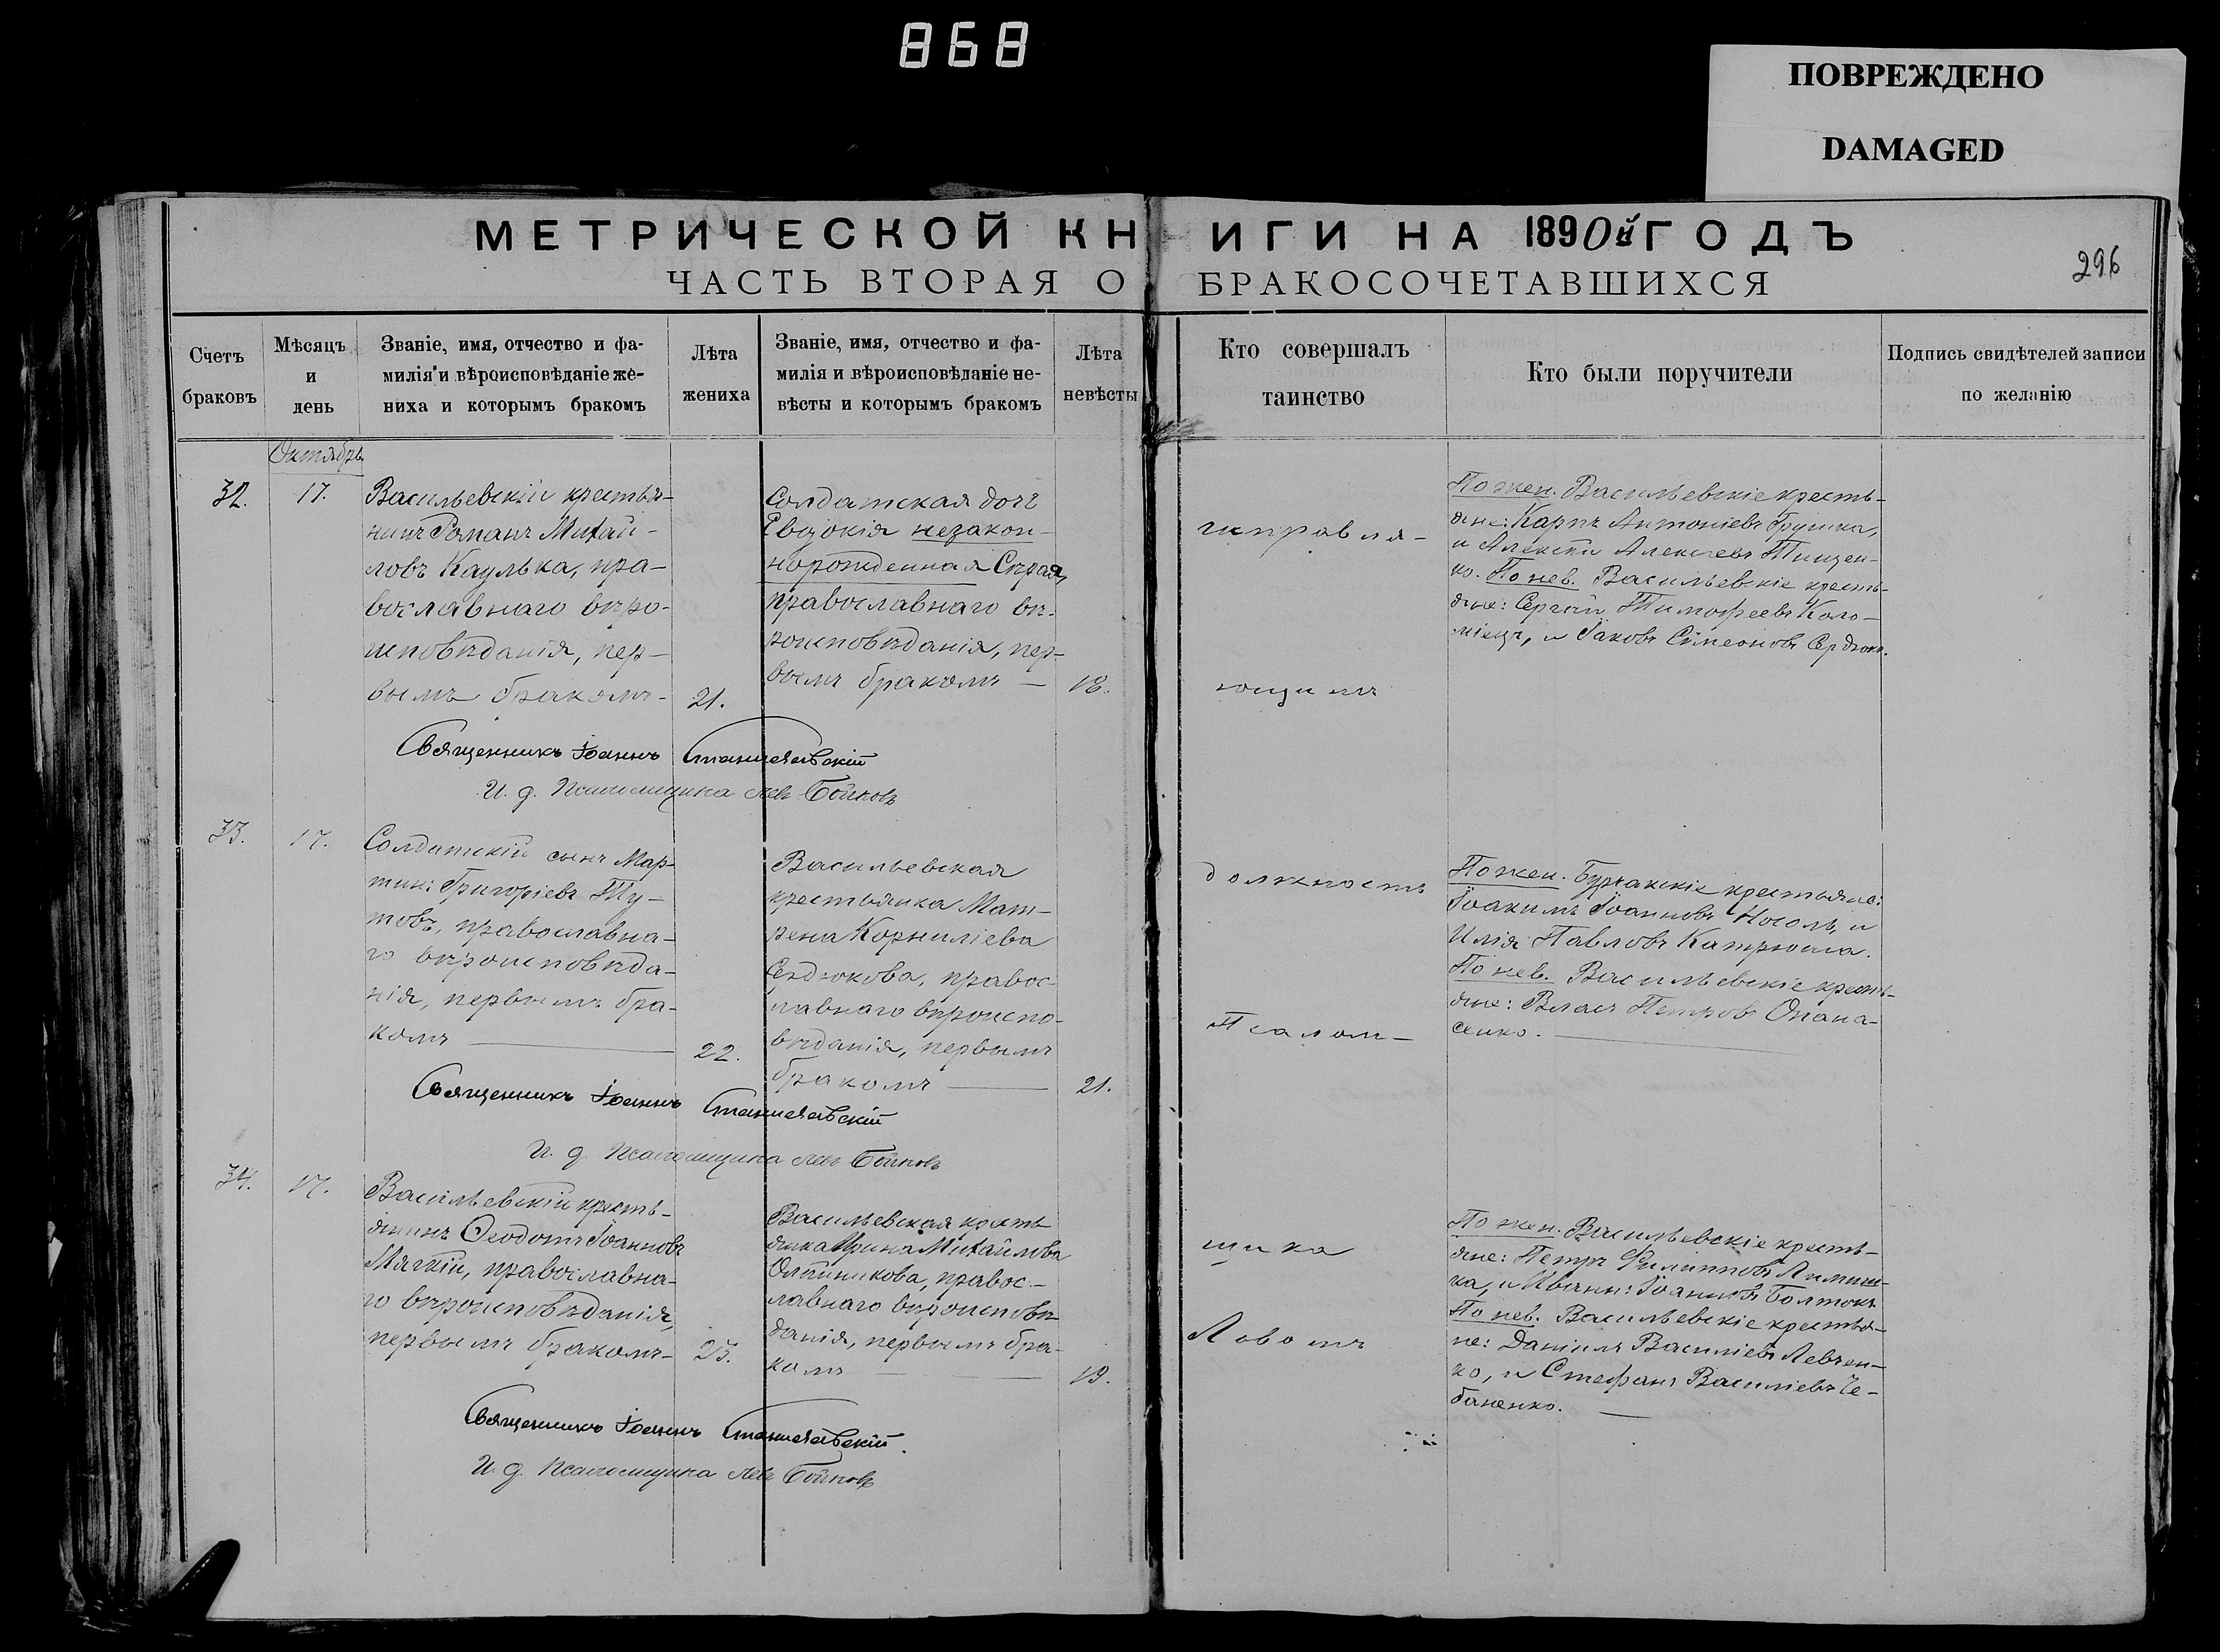 868
ПОВРЕЖДЕНО
DAMAGED
МЕТРИЧЕСКОЙ КНИГИ НА 1890й ГОДЪ
ЧАСТЬ ВТОРАЯ О БРАКОСОЧЕТАВШИХСЯ
296
Счетъ
браковъ
Мѣсяцъ
и
день
Званіе, имя, отчество и фа-
милія и вѣроисповѣданіе же-
ниха и которымъ бракомъ
Лѣта
жениха
Званіе, имя, отчество и фа-
милія и вѣроисповѣданіе не-
вѣсты и которымъ бракомъ
Лѣта
невѣсты
Кто совершалъ
таинство
Кто были поручители
Подпись свидѣтелей записи
по желанію
Октябрь
32.
17.
Васильевскій крестья-
нинъ Романъ Михай-
ловъ Каулька, пра-
вославнаго вѣро-
исповѣданія, пер-
вымъ бракомъ-
21.
Солдатская дочь
Евдокія незакон-
норожденная Сѣрая,
православнаго вѣ-
роисповѣданія, пер-
вымъ бракомъ —
18.
исправля-
ющимъ
По жен. Васильевскіе кресть-
яне: Карпъ Антоніевъ Грушка,
и Алексѣй Алексѣевъ Тищен-
ко. По нев. Васильевскіе кресть-
яне: Сергѣй Тимофеевъ Коло-
міецъ, и Іаковъ Сѵмеоновъ Сердюкъ.
Священникъ Іоаннъ Станиславскій
И. д. Псаломщика Левъ Бойковъ
33.
17.
Солдатскій сынъ Мар-
тинъ Григоріевъ Ту-
товъ, православна-
го вѣроисповѣда-
нія, первымъ бра-
комъ —
22.
Васильевская
крестьянка Мат-
рена Корниліева
Сердюкова, правос-
лавнаго вѣроиспо-
вѣданія, первымъ
бракомъ —
21.
должность
Псалом-
По жен. Бурчакскіе крестьяне:
Іоакимъ Іоанновъ Носоль, и
Илія Павловъ Катрюша.
По нев. Васильевскіе кресть-
яне: Власъ Петровъ Опана-
сенко. —
Священникъ Іоаннъ Станиславскій
И. д. Псаломщика Левъ Бойковъ
34.
17.
Васильевскій кресть-
янинъ Ѳеодотъ Іоанновъ
Мягкій, православна-
го вѣроисповѣданія,
первымъ бракомъ-
23.
Васильевская кресть-
янка Ирина Михайлова
Олейникова, правос-
лавнаго вѣроисповѣ-
данія, первымъ бра-
комъ —
19.
щика
Львомъ
По жен. Васильевскіе кресть-
яне: Петръ Филипповъ
ка, и Іоанновъ Болтокъ
По нев. Васильевскіе крестья-
не: Даніилъ Василіевъ Левчен-
ко, и Стефанъ Василіевъ Че-
баненко. —
Священникъ Іоаннъ Станиславскій.
И. д. Псаломщика Левъ Бойковъ